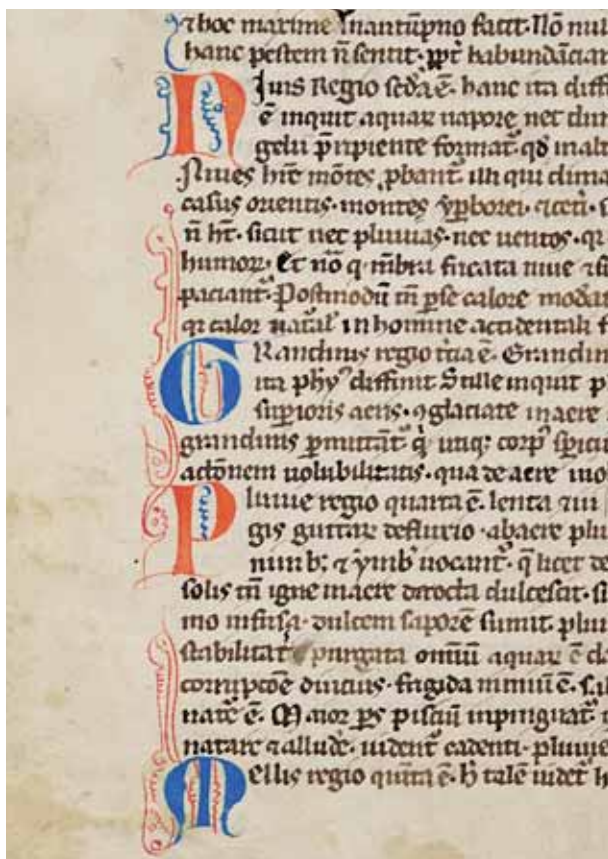 ⁊ hoc maxime in autūpno facit. Nō nul
hanc pestem n̄ sentit. ꝓpt̄ habundāciā
Niuis Regio scd̄a ē. hanc ita diff
ē inquit aquaꝝ uapore nec dum
gelu p̄ripiente formaꞇ̄ qd̄ in alt
Niues hn̄t mōtes ꝓbant̄ illi qui clima
casus orientis. montes yp̄borei. ⁊ceꞇ̄i.
n̄ hꞇ̄. sicut nec pluuias. nec uentos. qꝛ
humoꝛ. Et nō q̄ mb̄ra fricata niue ⁊
paciant̄. Postmodū tn̄ ꝑ se calore
qꝛ calor nat̄al̄ in homine accidentali
GRandinis regio t̄cia ē. Grandin
ita phy᾽ diffinit Stille inquit p
suꝑioris aeris. ꝯglaciate in aere
grandinis ꝑmutāt̄ q̄ utiqꝫ corꝑ᾽ speric
actōnem uolubilitatis. qua de aere mo
Pluuie regio quarta ē. lenta
gis guttaꝝ defluxio. ab aere plu
nūibꝫ ⁊ ymb᾽ uocant̄. q̄ licet de
solis tn̄ igne in aere decocta dulcescat. si
mo infusa. dulcem saporē sumit. plui
stabilitat̄ purgata om̄iū aquaꝝ ē
corrupcōe diuicius. frigida nimiū ē.
nat̄e ē. Maior ꝑs pisciū inpinguat̄.
natare ⁊ alludē. uident̄ cadenti. pluuie
Mellis regio quīta ē. h̄ talē uidet̄ h